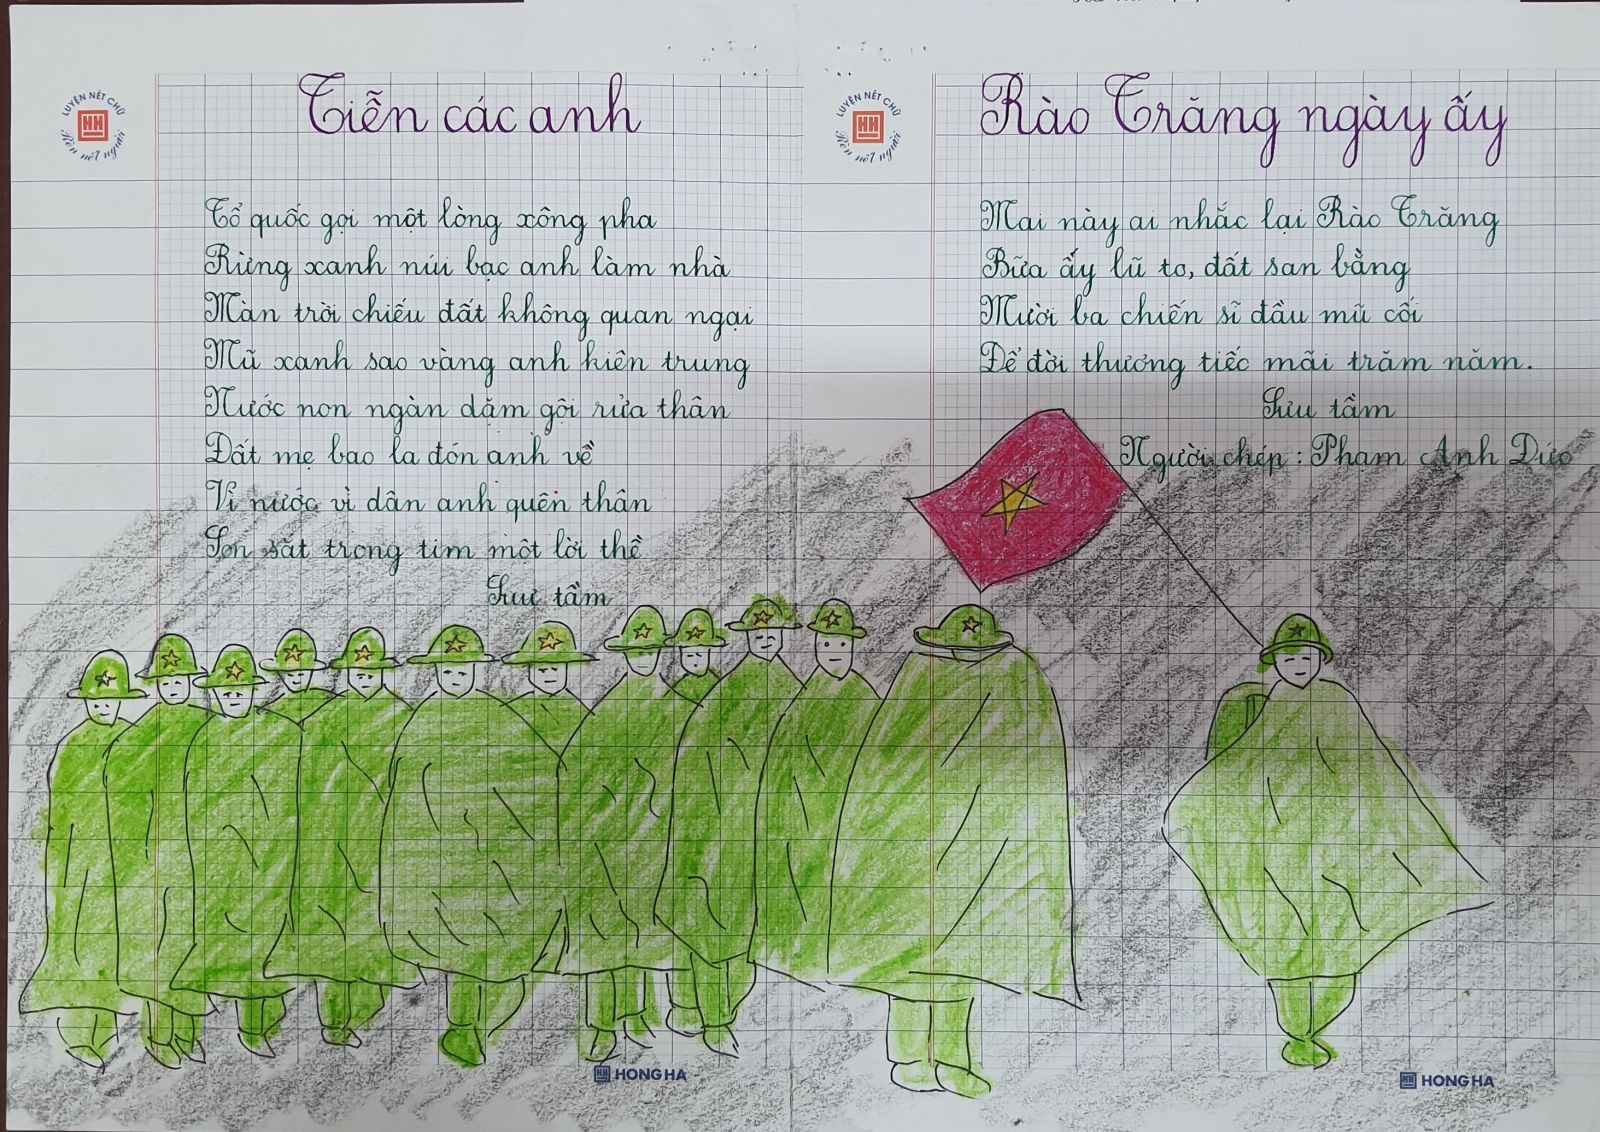 LUYỆN NÉT CHỮ
HH
Rèn nết người
Tiễn các anh
Tổ quốc gọi một lòng xông pha
Rừng xanh núi bạc anh làm nhà
Màn trời chiếu đất không quan ngại
Mũ xanh sao vàng anh kiên trung
Nước non ngàn dặm gội rửa thân
Đất mẹ bao la đón anh về
Vì nước vì dân anh quên thân
Son sắt trong tim một lời thề
Sưu tầm
HH HONG HA
LUYỆN NÉT CHỮ
HH
Rèn nết người
Rào Trăng ngày ấy
Mai này ai nhắc lại Rào Trăng
Bữa ấy lũ to, đất san bằng
Mười ba chiến sĩ đầu mũ cối
Để đời thương tiếc mãi trăm năm.
Sưu tầm
Người chép: Phạm Anh Đức
HH HONG HA